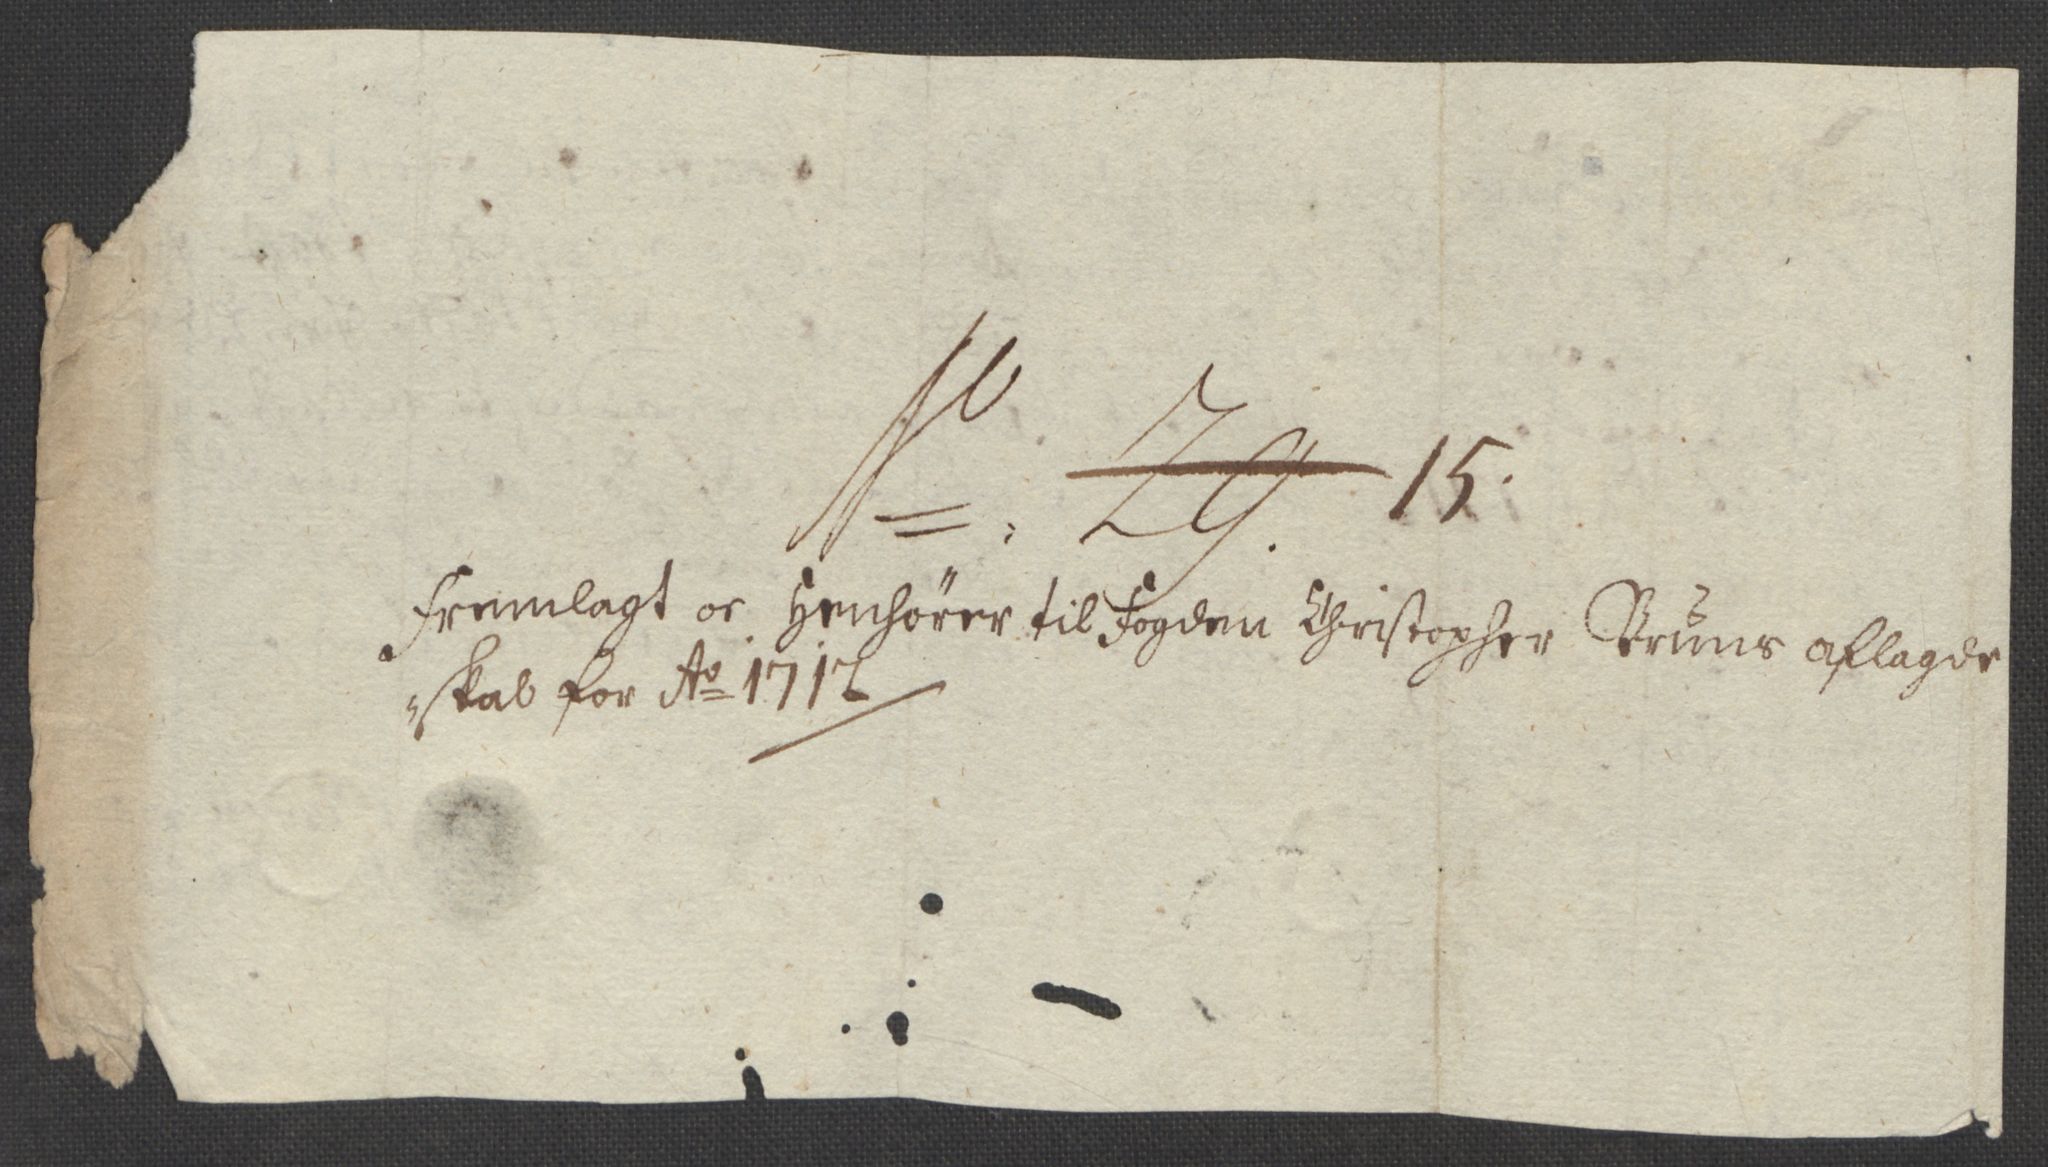 No. 29. 15.
Fremlagt oc Henhörer til Fogden Christopher Bruns aflagde
skab for Ao 1712